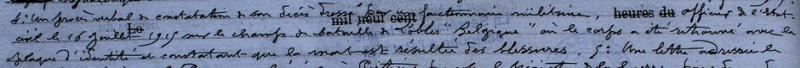 4: Un procès verbal de constatation de son décès dressé par un fonctionnaire militaire, officier d'état-
civil le 16 juillet 1915 sur le champs de bataille de Lobbes "Belgique" où le corps a été retrouvé avec la
plaque d'identité et constatant que la mort est résultée des blessures. 5: Une lettre adressée le